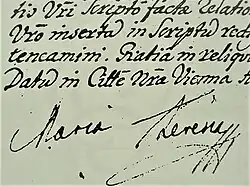 tis Vri Scripto facta relatio
Vro inserta in Scriptis redi
tencamini. Gratia in reliqu
Datu in Citte Nra Vienna
Maria Theresia